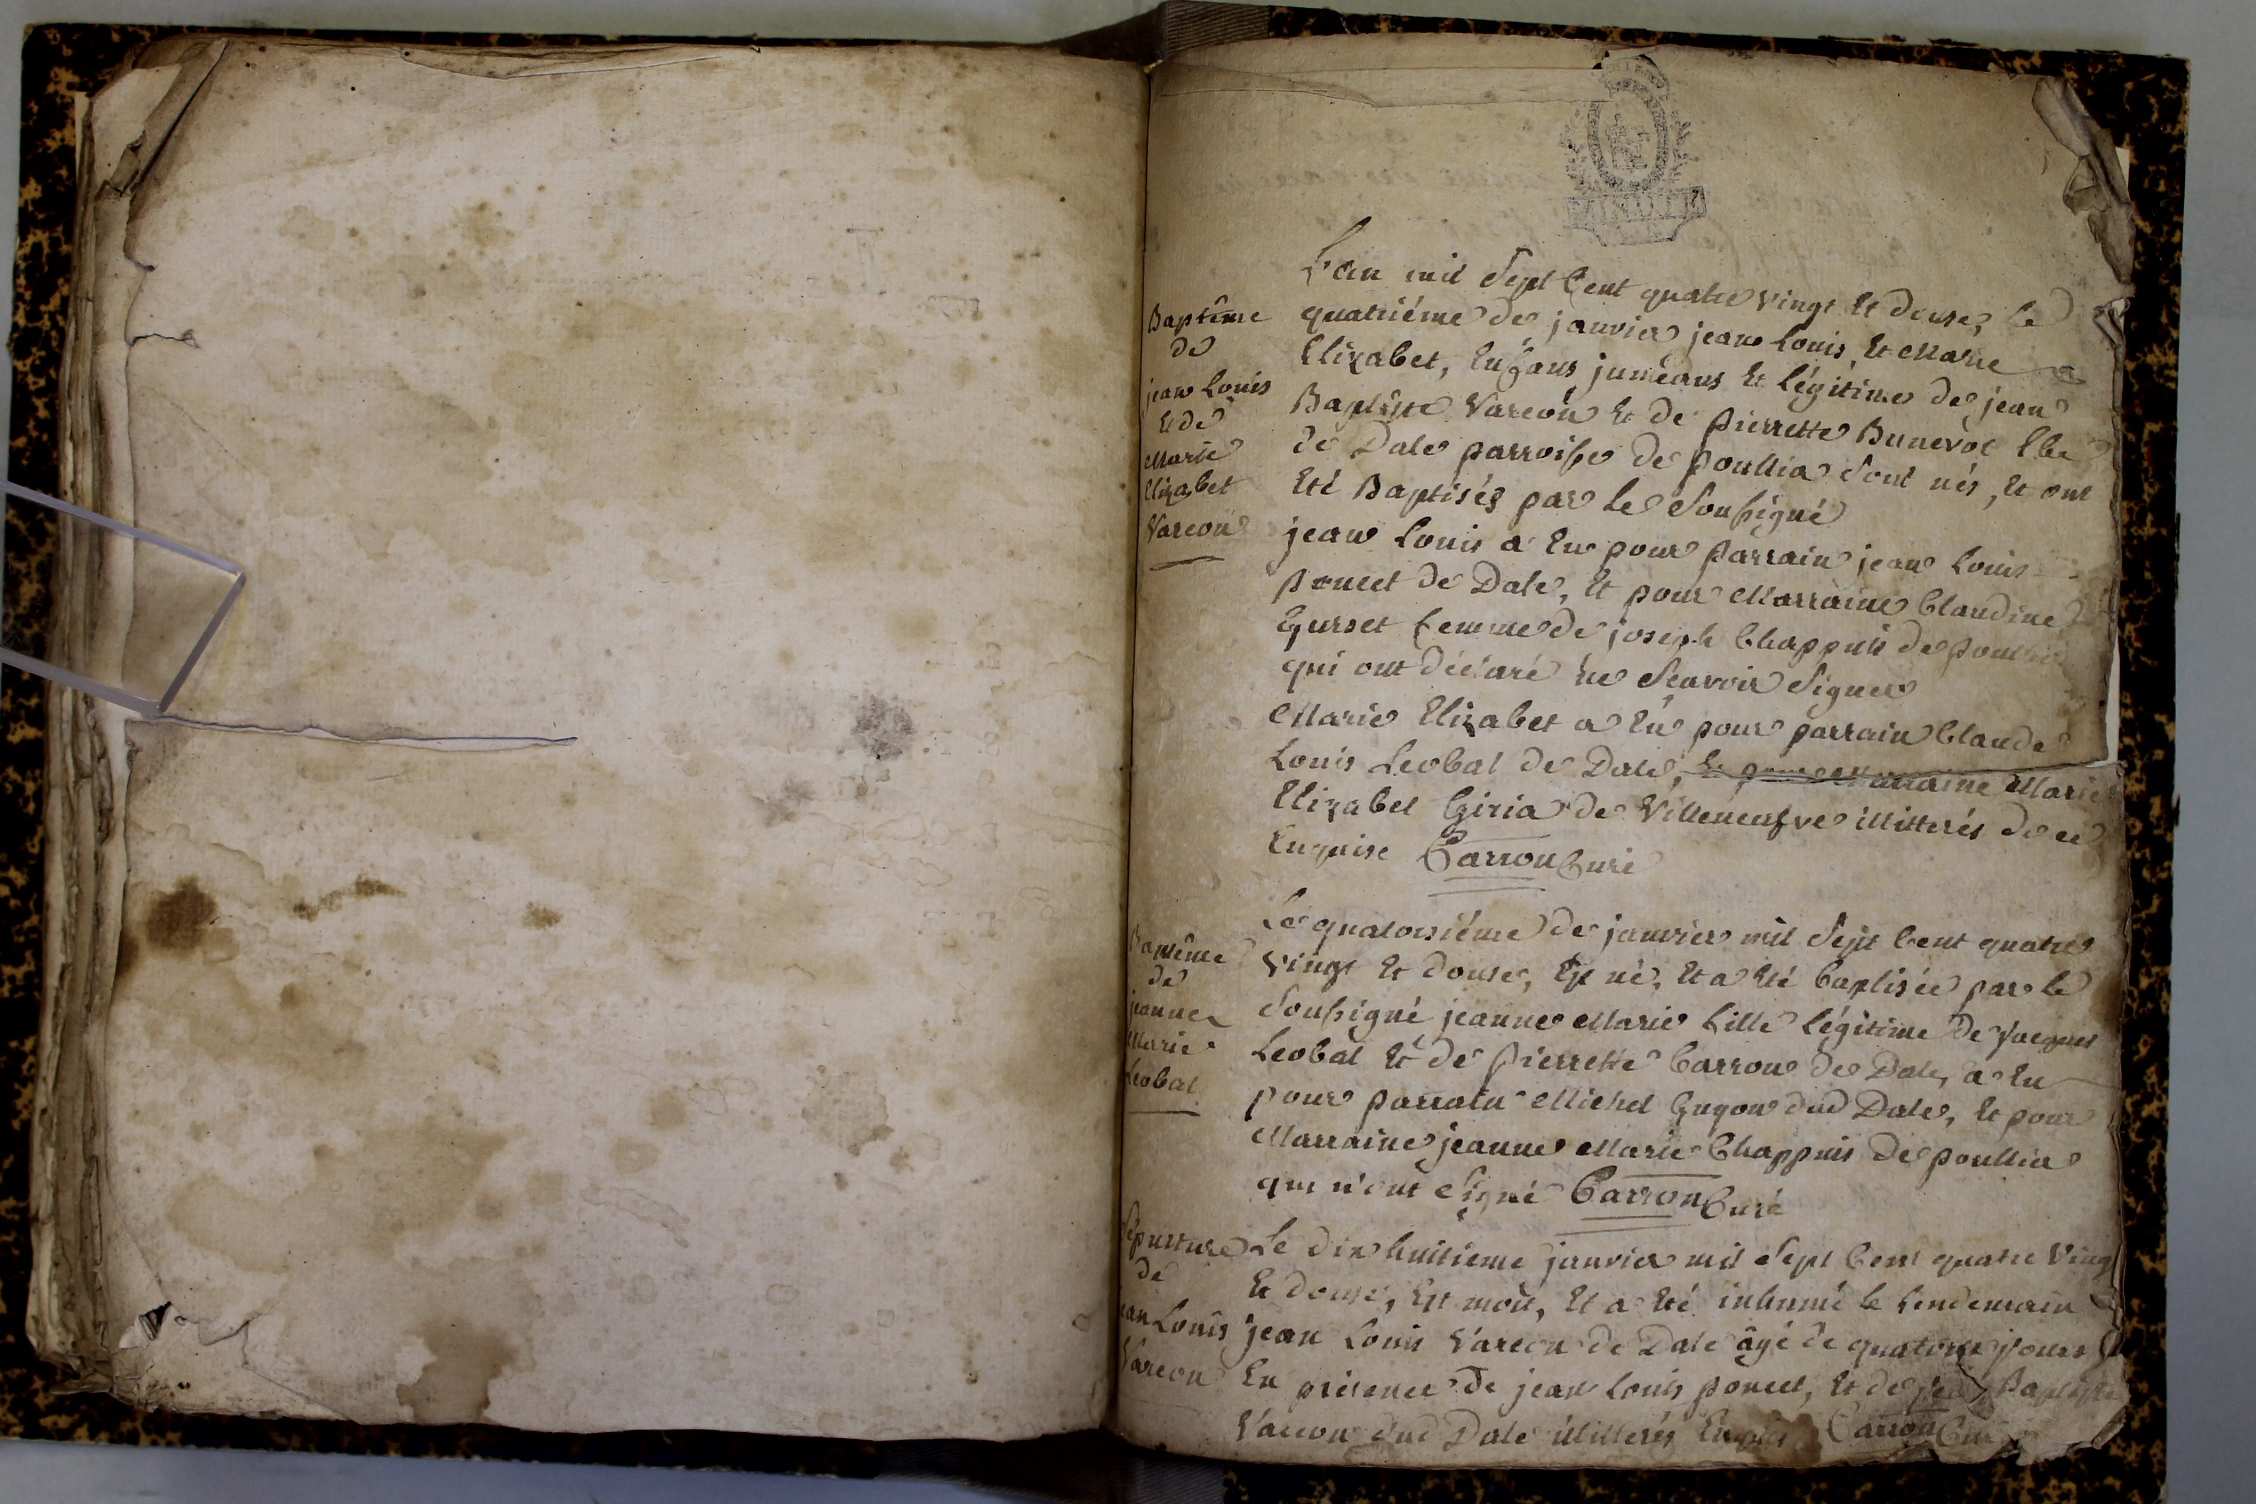 L'an mil Sept Cent quatre vingt Et douse, le
Baptême
de
jean Louis
Et de
Marie
Elizabet
Varcon
quatriéme de janvier jean Louis, Et Marie
Elizabet, Enfans juméaus Et légitime de jean
Baptiste Varcon Et de pierrette Bunevoc
de Dale parroisse de poullia sont nés, Et ont
Eté Baptisés par le Soussigné
jean Louis a Eu pour parrain jean Louis
poncet de Dale, Et pour Marraine Claudine
Gurset femme de joseph Chappuis de poullia
qui ont déclaré ne Scavoir Signer
Marie Elizabet a Eu pour parrain Claude
Louis Leobal de Dale, Et pour Marraine Marie
Elizabet Giria de Villeneufve illitterés de ce
Enquise Carron Curé
Baptême
de
jeanne
Marie
Leobal
Le quatorsiéme de janvier mil Sept Cent quatre
vingt Et douse, Est né, Et a Eté baptisée par le
Soussigné jeanne Marie fille légitime de jacques
Leobal Et de pierrette Carron de Dale, a Eu
pour parrain Michel Guyon dud Dale, Et pour
Marraine jeanne Marie Chappuis de poullia
qui n'ont Signé Carron Curé
Sépulture
de
jean Louis
Varcon
Le dix huitième janvier mil Sept Cent quatre Vingt
Et douse, Est mort, Et a Eté inhumé le lendemain
jean Louis Varcon de Dale âgé de quatorse jours
En présence de jean Louis poncet, Et de jean Baptiste
Varcon dud Dale illitterés Enquis Carron Curé